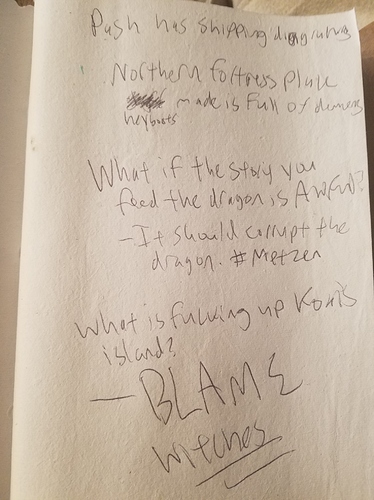 Push has shipping diagrams
Northern fortress place
made is full of demons
heyboats
What if the story you
feed the dragon is AWFUL?
- It should corrupt the
dragon. #Metzen
What is fucking up Kom's
island?
- BLAME
witches